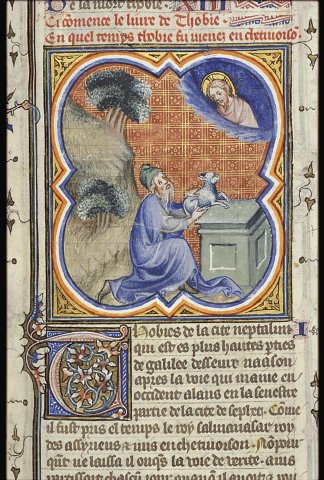 De la mort thobie. XIII
Ci comence le liure de Thobie
En quel temps thobie fu menez en chetiuoiso.
Thobies de la cite neptalim
qui est es plus hautes pties
de galilee desseure naason
apres la uoie qui maine en
occident alans en la senestre
partie de la cite de sephet. Come
il fust pris el temps le roy salmanasar roy
des assyriens & mis en chetiuoison. No pour
quāt ne laissa il onqs la uoie de uerite. ains